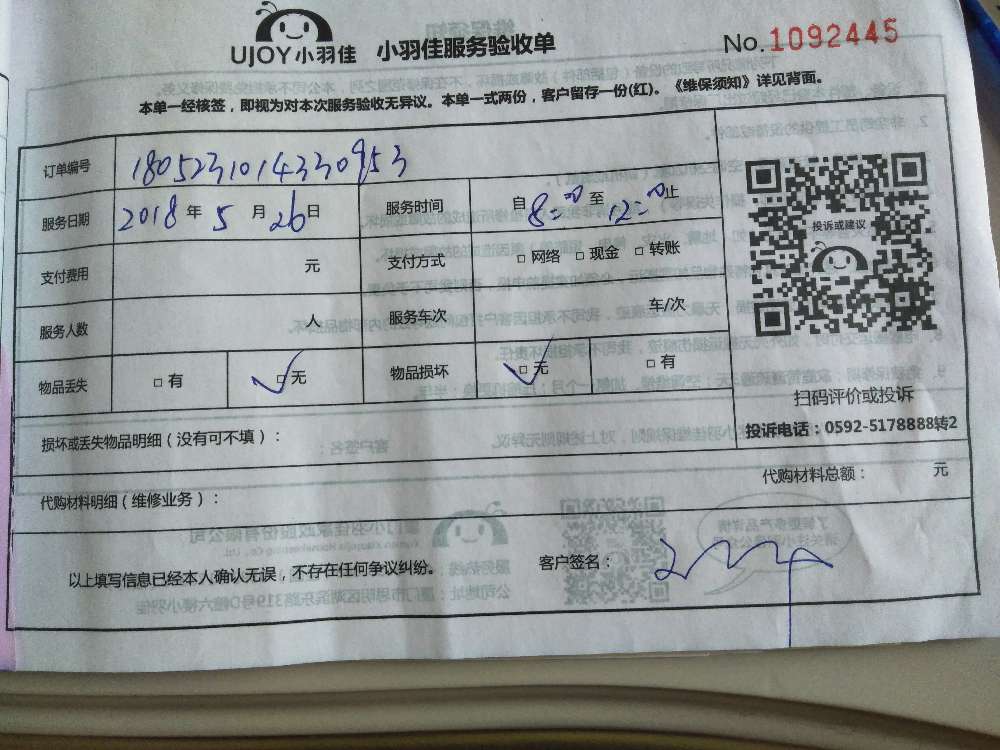 UJOY小羽佳 小羽佳服务验收单 No.1092445
本单一经核签，即视为对本次服务验收无异议。本单一式两份，客户留存一份(红)。《维保须知》详见背面。
订单编号 1805231014330953
服务日期 2018 年 5 月 26 日 服务时间 自 8:00 至 12:00 止
支付费用 元 支付方式 □ 网络 □ 现金 □ 转账
服务人数 人 服务车次 车/次
物品丢失 □ 有 ✓□ 无 物品损坏 ✓□ 无 □ 有
投诉或建议
扫码评价或投诉
投诉电话：0592-5178888转2
损坏或丢失物品明细（没有可不填）：
代购材料明细（维修业务）： 代购材料总额： 元
以上填写信息已经本人确认无误，不存在任何争议纠纷。 客户签名：